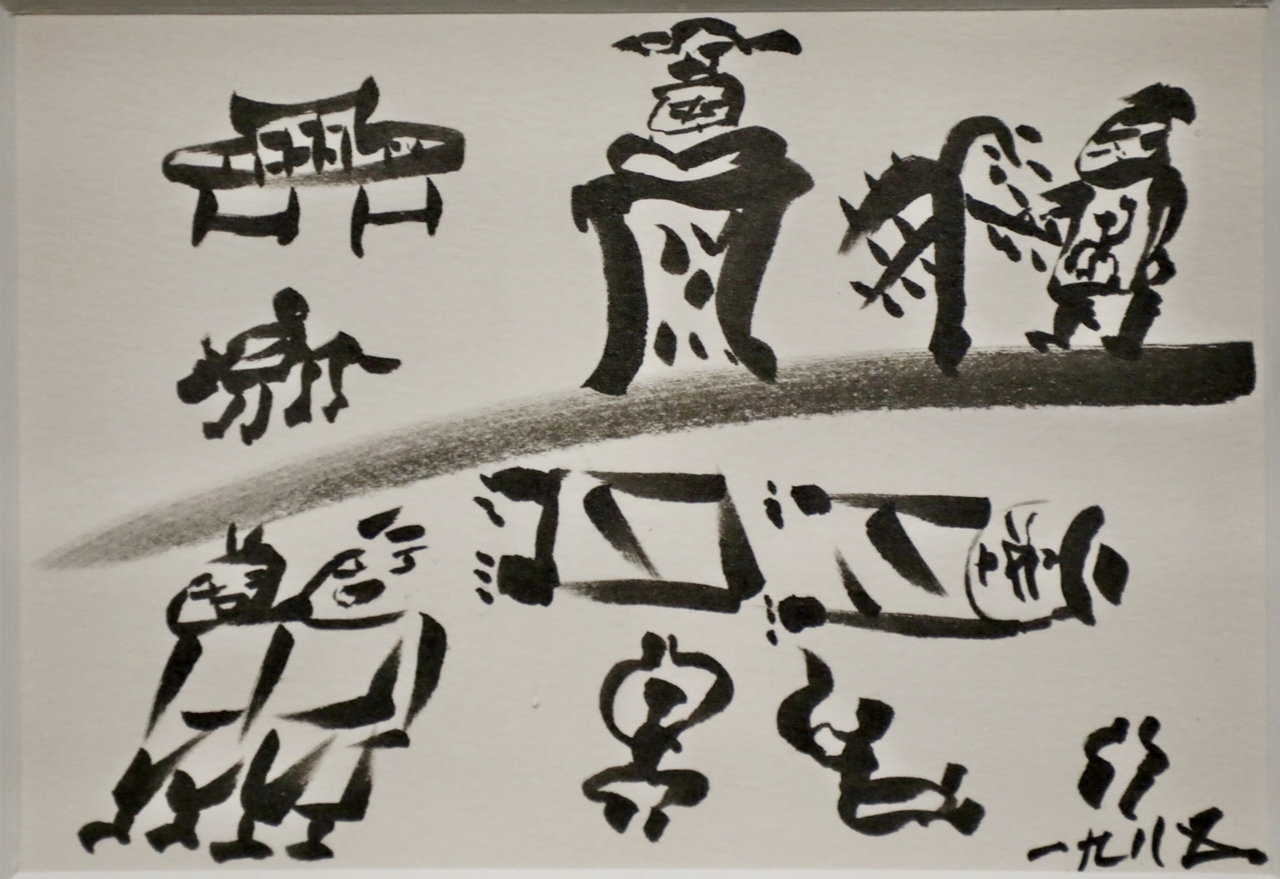 一九八五